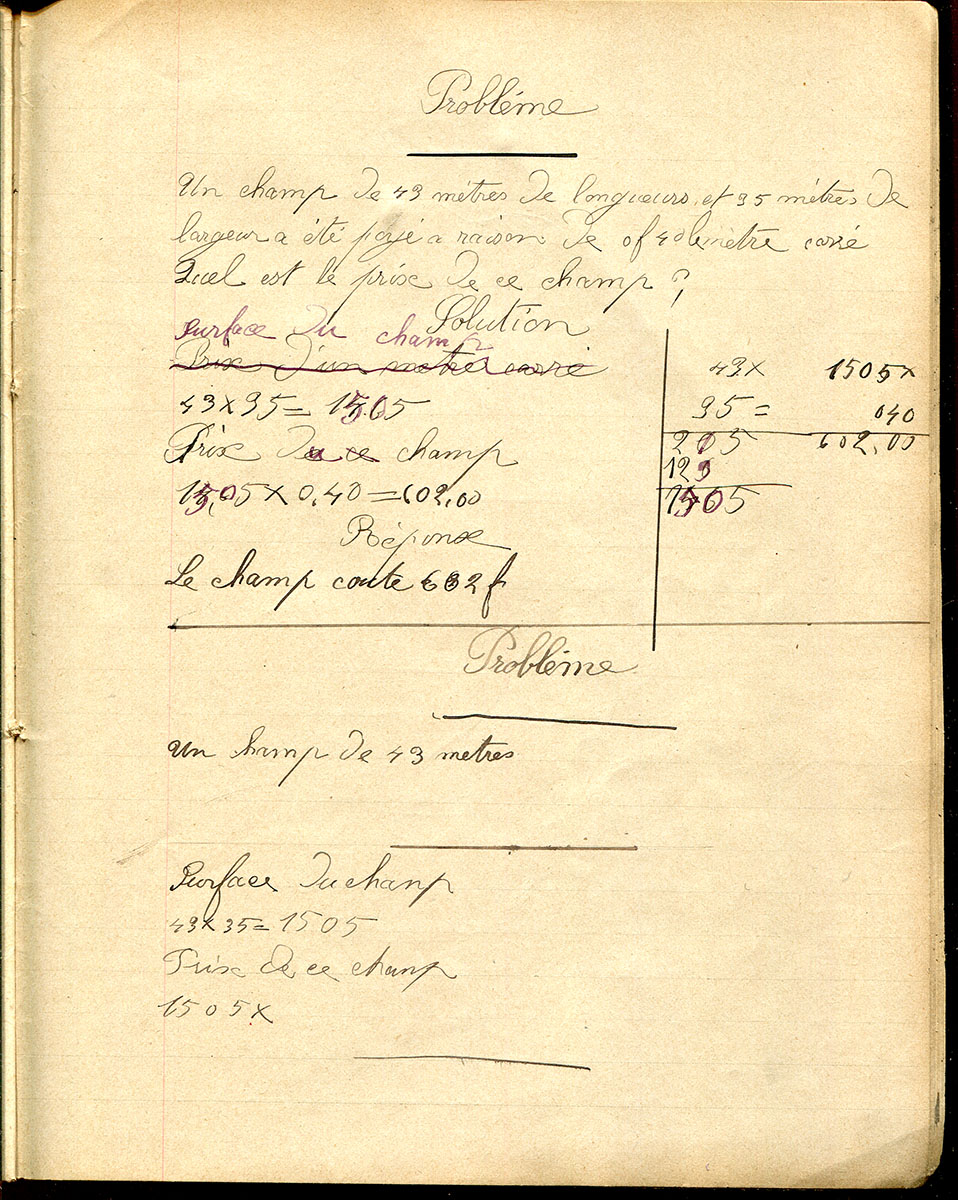 Problême
Un champ de 43 mètres de longueurs et 35 mètres de
largeur a été payé a raison de 0f40 le mètre carré
Quel est le prix de ce champ ?
Solution
Surface du champ
Prix d'un metre carré
43 x 35 = 1505
Prix de ce champ
1505 x 0,40 = 602,00
Réponse
Le champ coute 602 f
43 x
35 =
215
129
1505
1505 x
040
602.00
Problême
Un champ de 43 metres
Surface du champ
43 x 35 = 1505
Prix de ce champ
1505 x